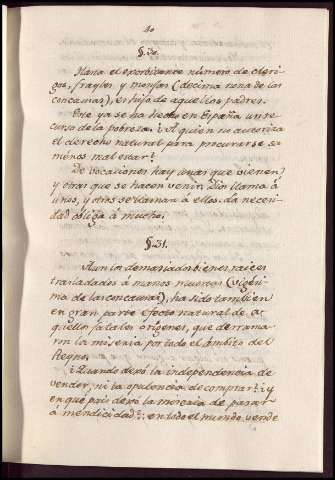 40
§. 30.
Hasta el exorbitante número de cleri-
gos, frayles y monjas (decima nona de las
concausas), es hijo de aquellos padres.
Este ya se ha hecho en España un re-
curso de la pobreza. ¿A quien no autoriza
el derecho natural para procurarse su
menos mal estar?
De vocaciones hay unas que vienen,
y otras que se hacen venir. Dios llama á
unos, y otros se llaman á ellos. La necesi-
dad obliga á mucho.
§. 31.
Aun los demasiados bienes raices
trasladados á manos muertas (vigési-
ma de las concausas), ha sido tambien
en gran parte efecto natural de a-
quellos fatales orígenes, que derrama-
ron la miseria por todo el ámbito del
Reyno.
¿Quando dexó la independencia de
vender; ni la opulencia de comprar? ¿y
en qué pais dexó la miseria de parar
á mendicidad?: en todo el mundo vende